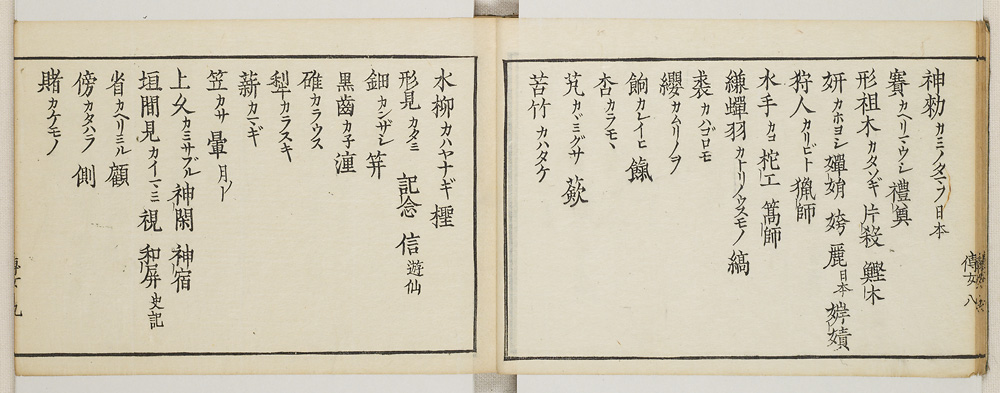 神勑カミノタマフ日本
賽カヘリマウシ 禮奠
形祖木カタソギ 片殺 鰹木
妍カホヨシ 嬋娟 姱 麗日本
狩人カリビト 猟師
水手カコ 柁工 篙師
縑蟬羽カトリノウスモノ 縞
裘カハゴロモ
纓カムリノヲ
餉カレイヒ
杏カラモヽ
芃カヾミグサ
苦竹カハタケ
傳女 八
水柳カハヤナギ 檉
形見カタミ 記念 信遊仙
鈿カンザシ 笄
黒歯カ子 涅
碓カラウス
犁カラスキ
薪カマギ
笠カサ 暈月ノ
上久カミサブル 神閑 神宿
垣間見カイマミ 視 和屏史記
省カヘリミル 顧
傍カタハラ 側
賭カケモノ